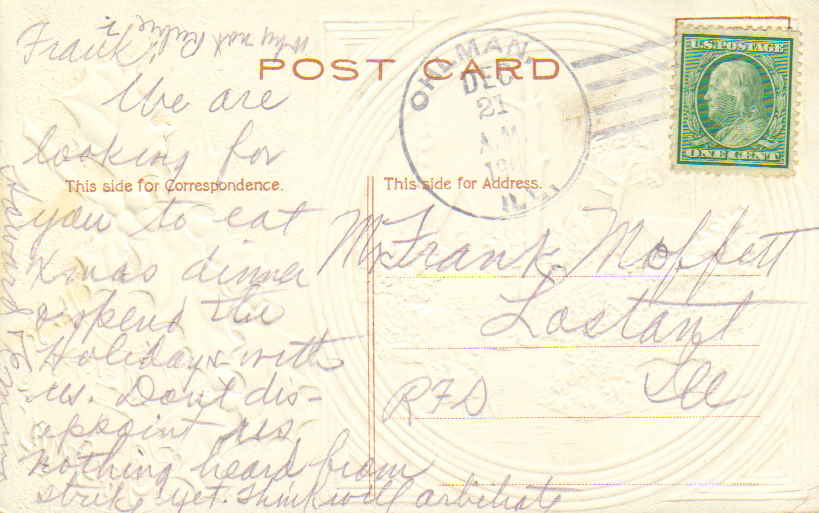 Frank,
Why not
POST CARD
OHLMAN,
DEC
21
A.M.
ILL.
U.S. POSTAGE
ONE CENT
We are
looking for
This side for Correspondence.
you to eat
Xmas dinner
& spend the
Holidays with
us. Dont dis-
appoint us,
nothing heard from
strike yet. Think will arbitrate
Howard &
This side for Address.
Mr Frank Moffett
Lostant
Ill
RFD